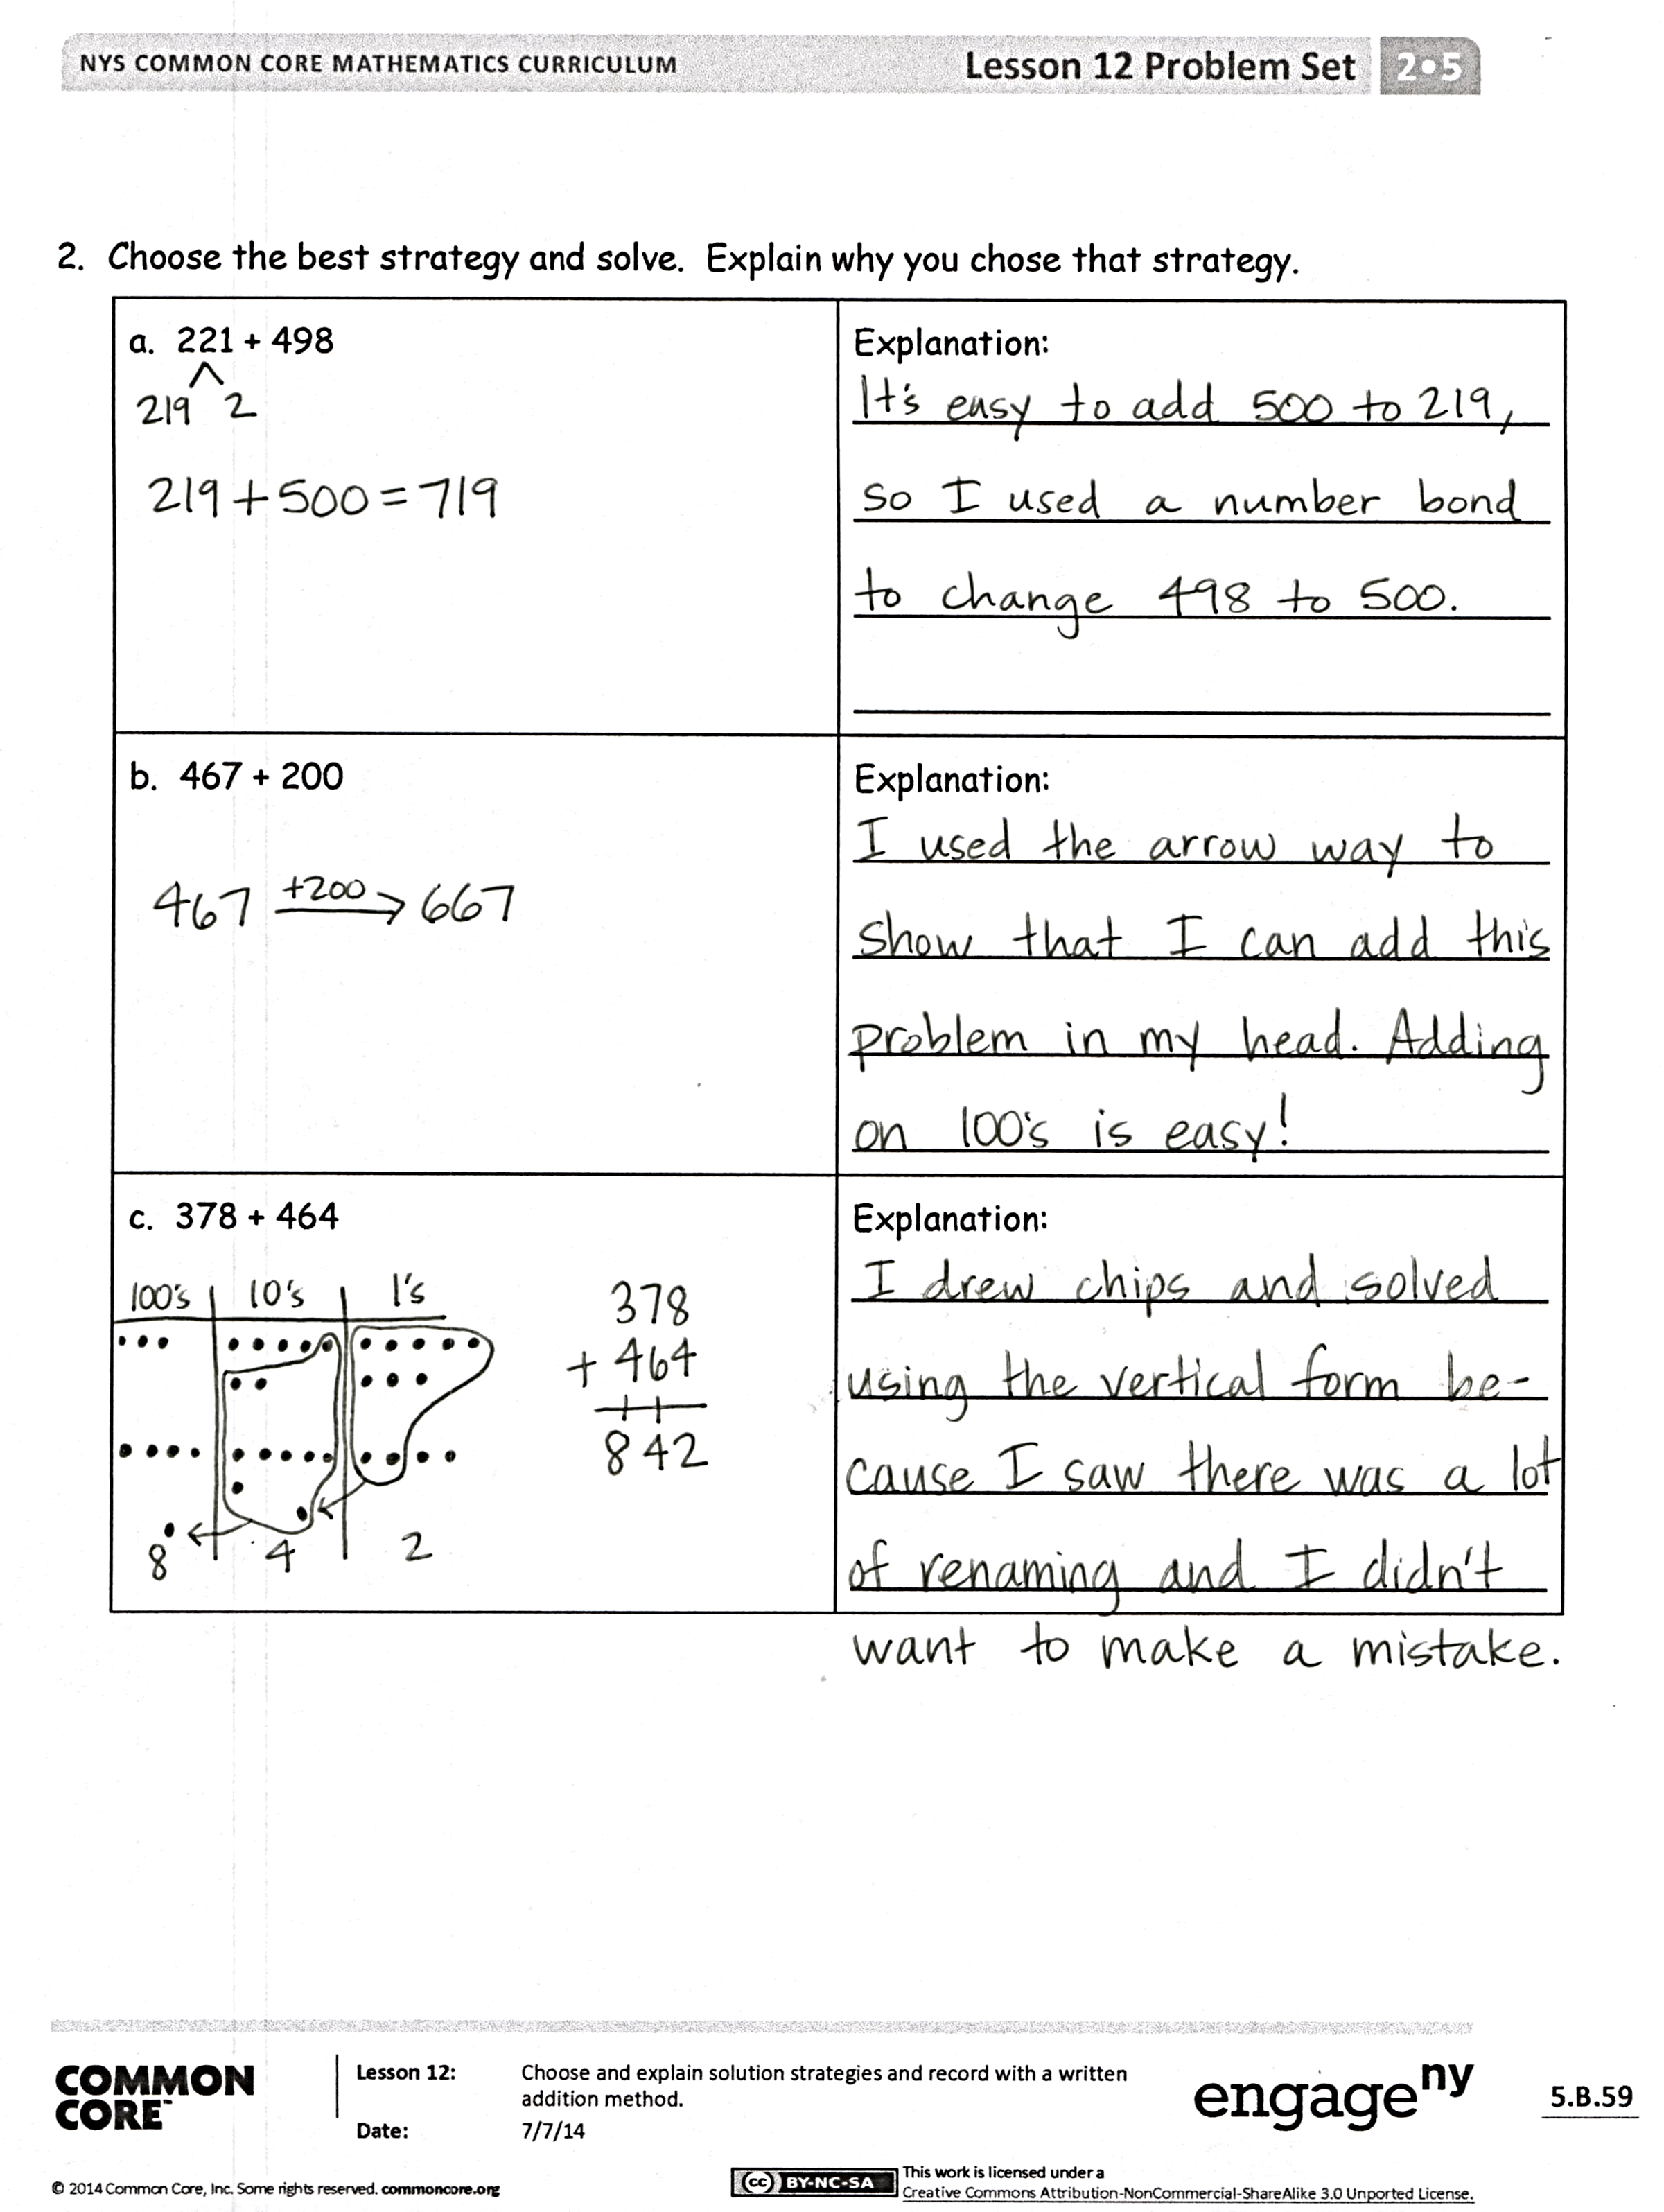 NYS COMMON CORE MATHEMATICS CURRICULUM
Lesson 12 Problem Set 2•5
2. Choose the best strategy and solve. Explain why you chose that strategy.
a. 221 + 498
219 2
219 + 500 = 719
Explanation:
It's easy to add 500 to 219,
so I used a number bond
to change 498 to 500.
b. 467 + 200
467 +200 → 667
Explanation:
I used the arrow way to
show that I can add this
problem in my head. Adding
on 100's is easy!
c. 378 + 464
100's 10's 1's
8 4 2
378
+ 464
1 1
842
Explanation:
I drew chips and solved
using the vertical form be-
cause I saw there was a lot
of renaming and I didn't
want to make a mistake.
COMMON
CORE™
Lesson 12:
Choose and explain solution strategies and record with a written
addition method.
Date:
7/7/14
engageny
5.B.59
© 2014 Common Core, Inc. Some rights reserved. commoncore.org
cc BY-NC-SA
This work is licensed under a
Creative Commons Attribution-NonCommercial-ShareAlike 3.0 Unported License.